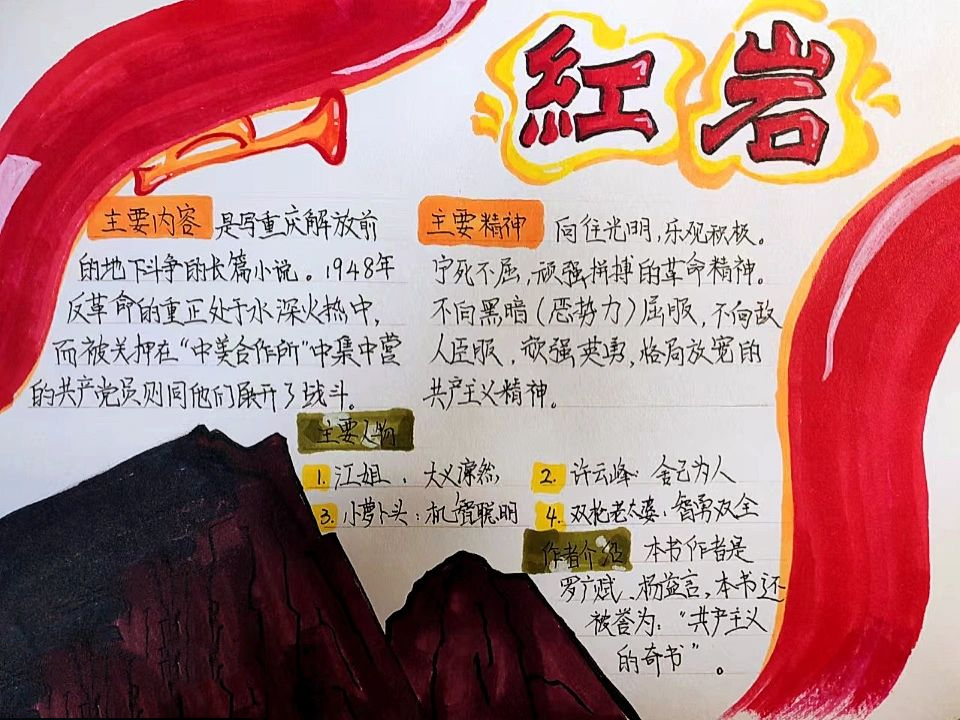 紅岩
主要内容 是写重庆解放前
的地下斗争的长篇小说。1948年
反革命的重正处于水深火热中,
而被关押在“中美合作所”中集中营
的共产党员则同他们展开了战斗。
主要精神 向往光明,乐观积极。
宁死不屈,顽强拼搏的革命精神。
不向黑暗(恶势力)屈服,不向敌
人臣服,顽强英勇,格局放宽的
共产主义精神。
主要人物
1. 江姐: 大义凛然 2. 许云峰: 舍己为人
3. 小萝卜头: 机智聪明 4. 双枪老太婆: 智勇双全
作者介绍 本书作者是
罗广斌、杨益言,本书还
被誉为:“共产主义
的奇书”。